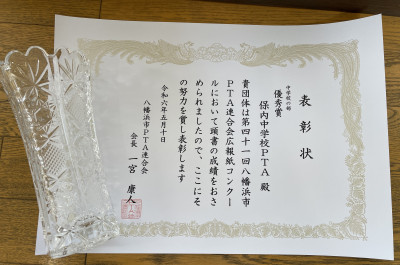 表彰状
中学校の部
優秀賞
保内中学校PTA 殿
貴団体は第四十一回八幡浜市
PTA連合会広報紙コンクー
ルにおいて頭書の成績をおさ
められましたので、ここにそ
の努力を賞し表彰します
令和六年五月十日
八幡浜市PTA連合会
会長 一宮 康人